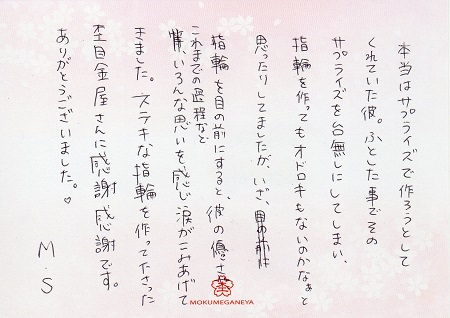 本当はサプライズで作ろうとして
くれていた彼。ふとした事でその
サプライズを台無しにしてしまい、
指輪を作ってもオドロキもないのかなぁと
思ったりしてましたが、いざ、
指輪を目の前にすると、彼の優しさ
これまでの過程など
いろんな思いを感じ涙がこみあげて
きました。ステキな指輪を作って下さった
杢目金屋さんに感謝感謝です。
ありがとうございました。♡
M.S
MOKUMEGANEYA